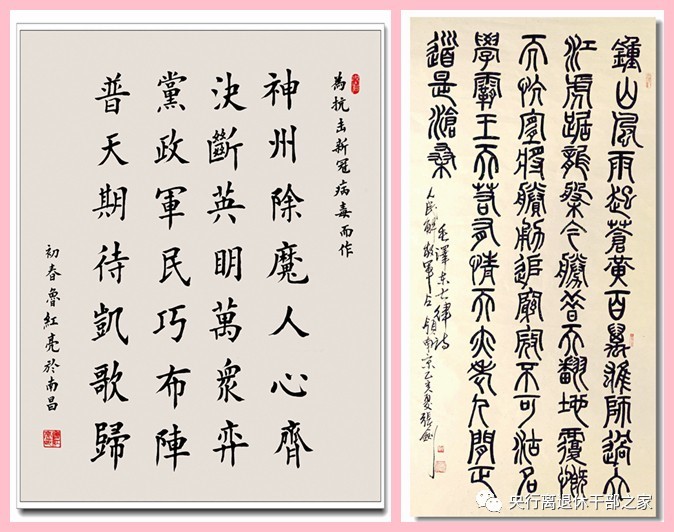 為抗击新冠病毒而作
神州除魔人心齊
決斷英明萬衆弈
黨政軍民巧布陣
普天期待凱歌歸
初春魯紅亮於南昌
鍾山風雨起蒼黃百萬雄師過大
江虎踞龍盤今勝昔天翻地覆慨
而慷宜將勝勇追窮寇不可沽名
學霸王天若有情天亦老人間正
道是滄桑
毛澤東七律诗
人民解放軍占領南京乙亥夏張
央行离退休干部之家